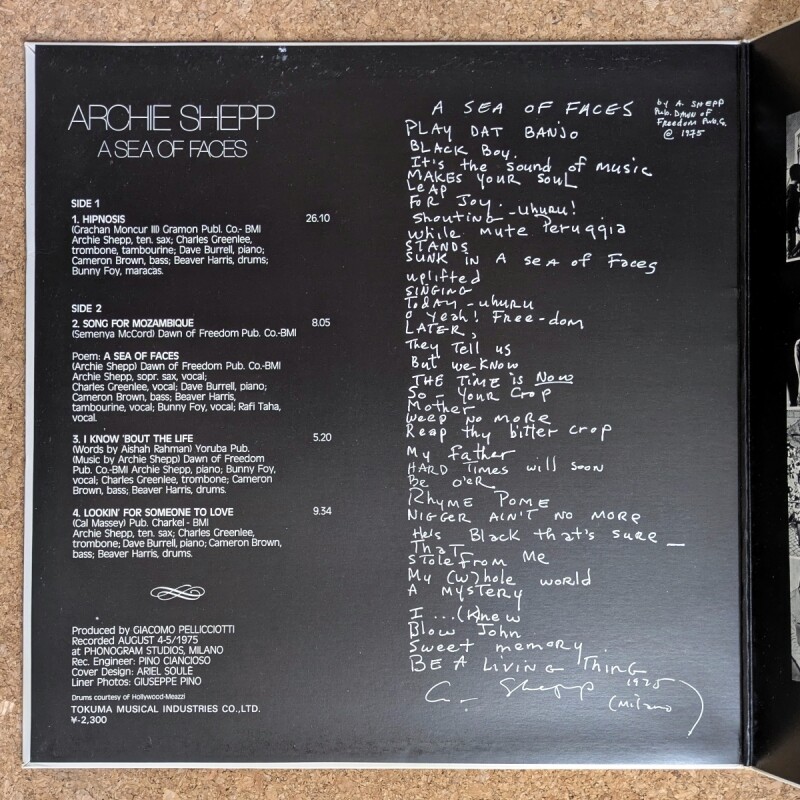 ARCHIE SHEPP
A SEA OF FACES
SIDE 1
1. HIPNOSIS 26.10
(Grachan Moncur III) Gramon Publ. Co.- BMI
Archie Shepp, ten. sax; Charles Greenlee,
trombone, tambourine; Dave Burrell, piano;
Cameron Brown, bass; Beaver Harris, drums;
Bunny Foy, maracas.
SIDE 2
2. SONG FOR MOZAMBIQUE 8.05
(Semenya McCord) Dawn of Freedom Pub. Co.-BMI
Poem: A SEA OF FACES
(Archie Shepp) Dawn of Freedom Pub. Co.-BMI
Archie Shepp, sopr. sax, vocal;
Charles Greenlee, vocal; Dave Burrell, piano;
Cameron Brown, bass; Beaver Harris,
tambourine, vocal; Bunny Foy, vocal; Rafi Taha,
vocal.
3. I KNOW 'BOUT THE LIFE 5.20
(Words by Aishah Rahman) Yoruba Pub.
(Music by Archie Shepp) Dawn of Freedom
Pub. Co.-BMI Archie Shepp, piano; Bunny Foy,
vocal; Charles Greenlee, trombone; Cameron
Brown, bass; Beaver Harris, drums.
4. LOOKIN' FOR SOMEONE TO LOVE 9.34
(Cal Massey) Pub. Charkel - BMI
Archie Shepp, ten. sax; Charles Greenlee,
trombone; Dave Burrell, piano; Cameron Brown,
bass; Beaver Harris, drums.
Produced by GIACOMO PELLICCIOTTI
Recorded AUGUST 4-5/1975
at PHONOGRAM STUDIOS, MILANO
Rec. Engineer: PINO CIANCIOSO
Cover Design: ARIEL SOULÉ
Liner Photos: GIUSEPPE PINO
Drums courtesy of Hollywood-Meazzi
TOKUMA MUSICAL INDUSTRIES CO.,LTD.
¥-2,300
A SEA OF FACES
by A. SHEPP
Pub. DAWN OF
FReedom Pub.G.
@ 1975
PLAY DAT BANJO
BLACK Boy.
It's the sound of music
MAKES YOUR SOUL
LEAP
FOR Joy.
Shouting - uhuru!
While mute Peruggia
STANDS
SUNK IN A sea of Faces
uplifted
SINGING
Today - uhuru
O Yeah! Free-dom
LATER,
They Tell us
But we KNOW
THE TIME is Now
So - Your Crop
Mother
weep no more
Reap thy bitter crop
My father
HARD Times will soon
Be o'er.
Rhyme Pome
NIGGER AIN'T NO MORE
He's Black that's sure _
That
Stole from Me
My (w)hole world
A MYSTERY
I ...(k)new
Blow John
Sweet memory.
BE A Living Thing
A. Shepp 1975
(Milano)